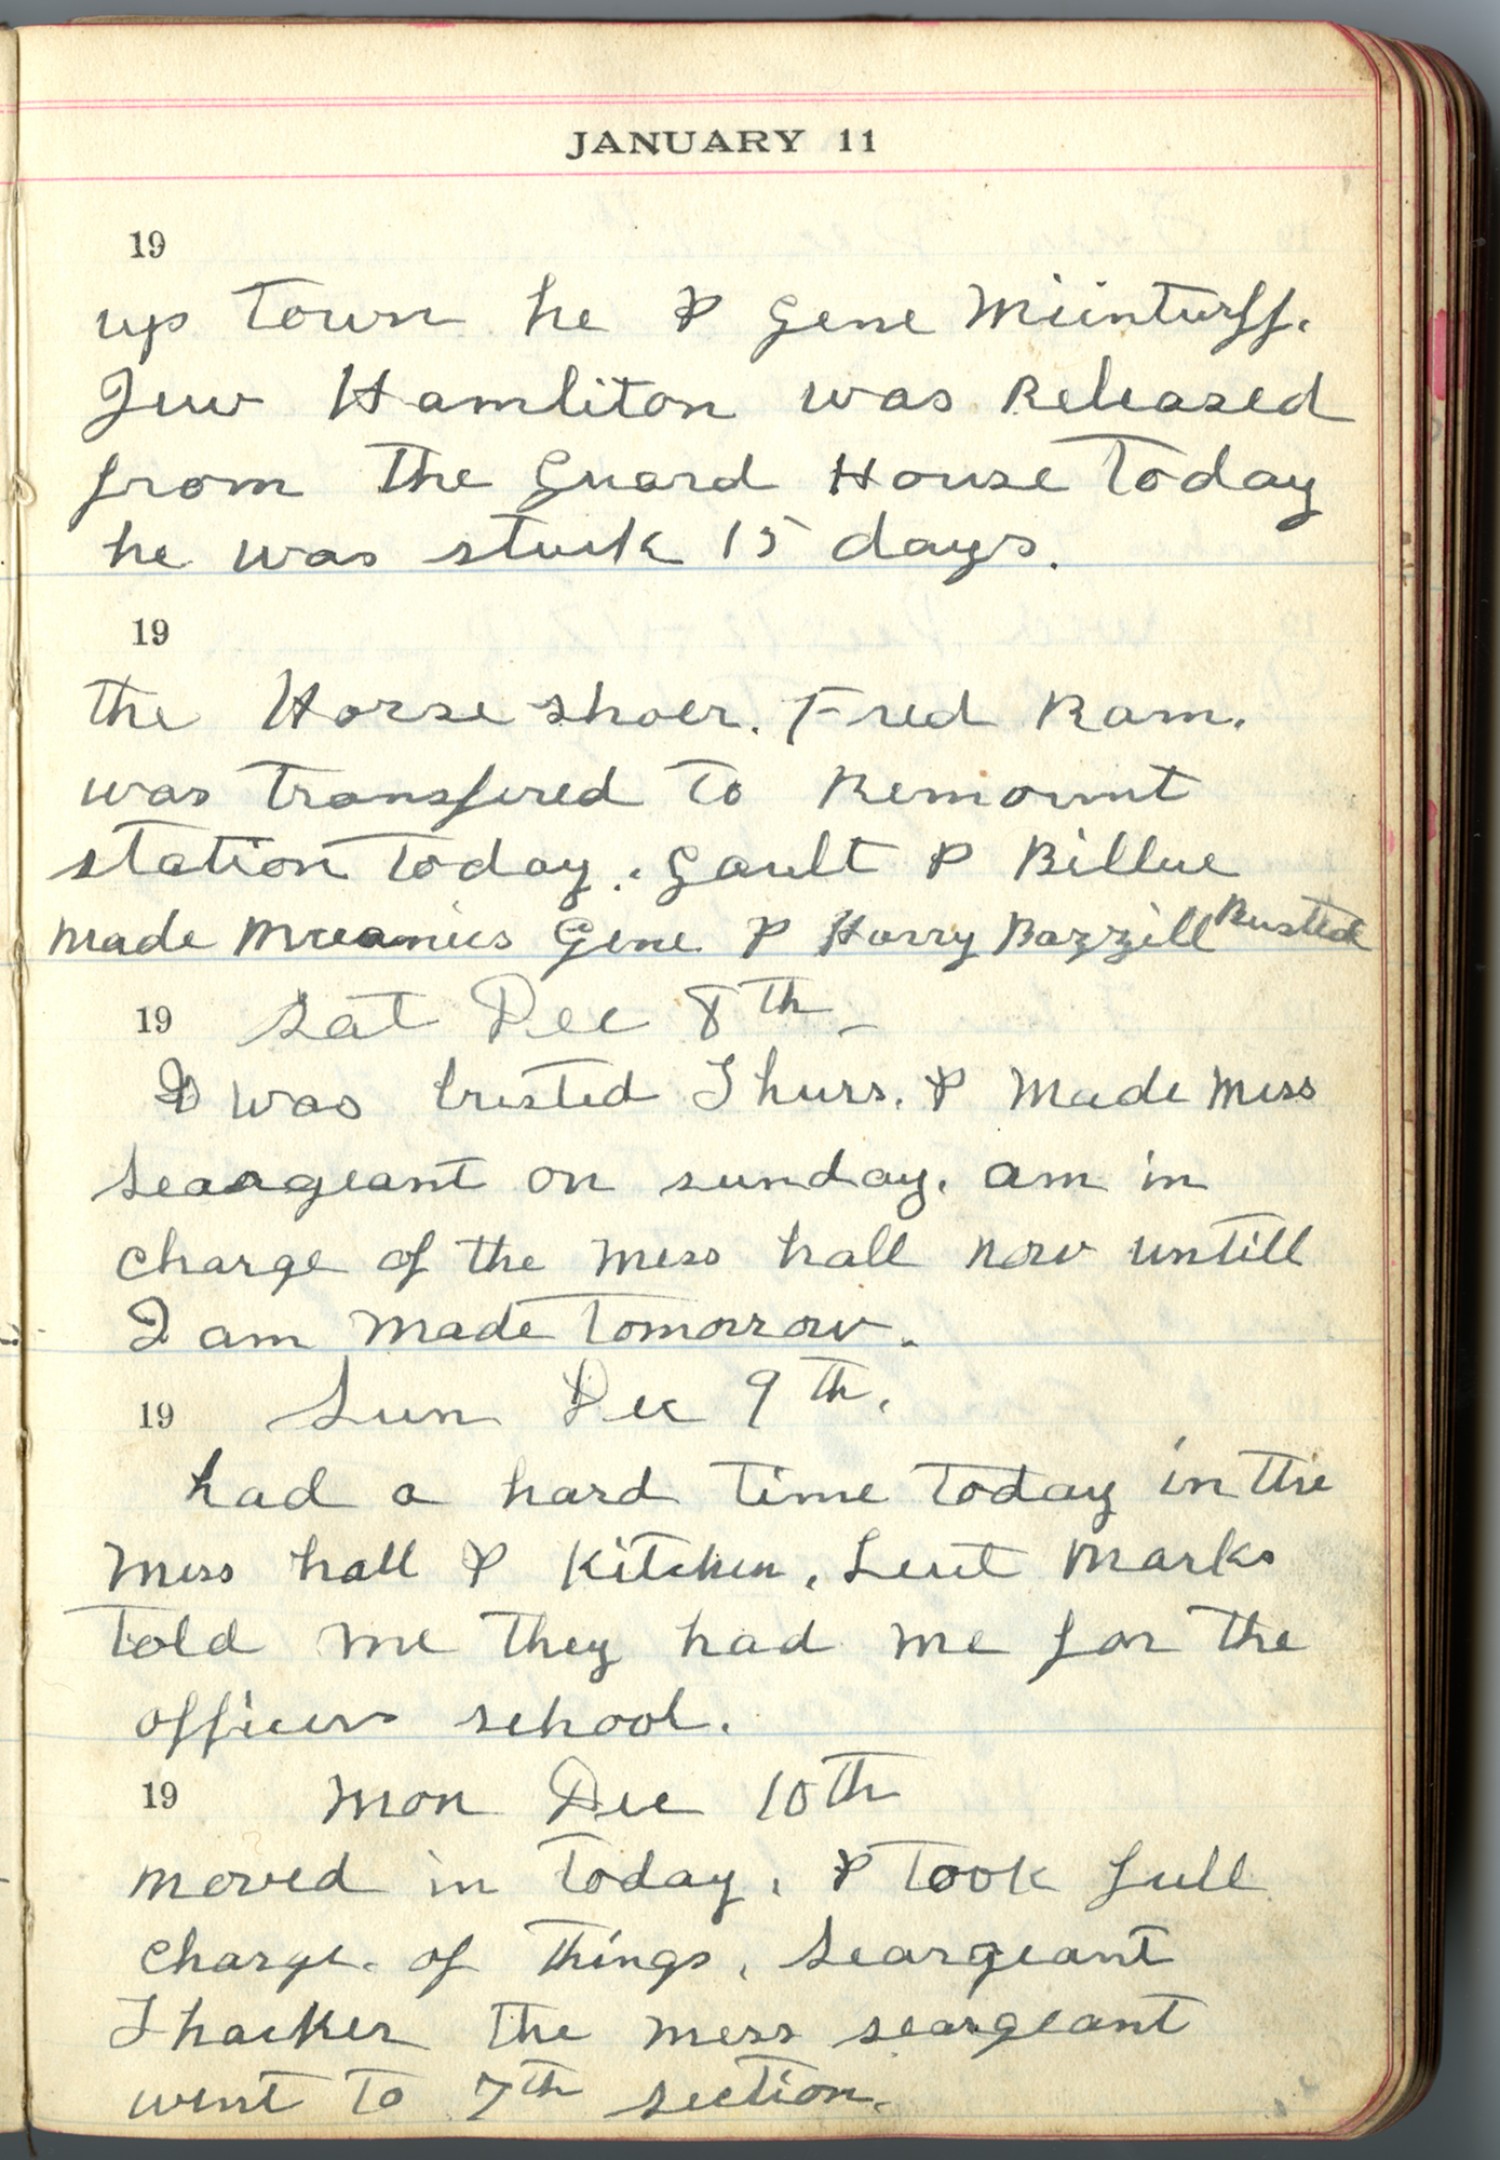 JANUARY 11
19
up town he & Gene Miinturff.
Juw Hamliton was Released
from the Guard House Today
he was stuck 15 days.
19
the Horse shoer. Fred Ram.
was transfered to Remount
station today. Gault & Billue
made Gene & Harry Bazzill Busted
19 Sat Dec 8th
I was busted Thurs. & Made Mess
Seargeant on sunday. am in
charge of the mess hall now untill
I am made tomorrow.
19 Sun Dec 9th.
had a hard time today in the
Mess hall & Kitchen, Leut Marks
told me they had me for the
officers school.
19 Mon Dec 10th
moved in today, & took full
charge of things, Seargeant
Thacker the mess seargeant
went to 7th section.